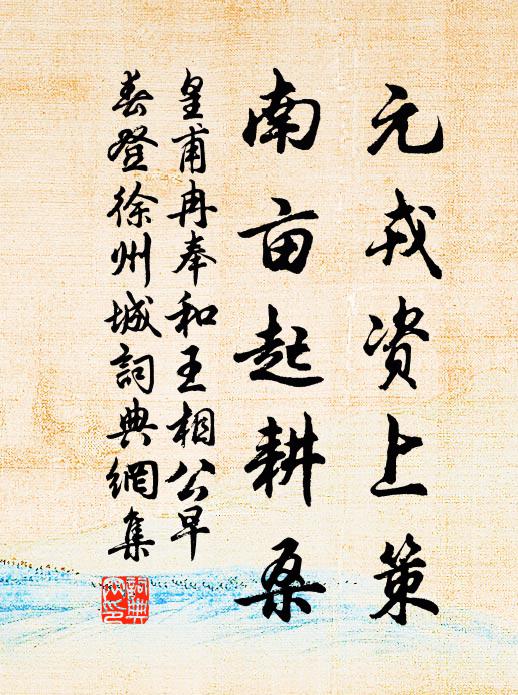 元戎资上策
南亩起耕桑
皇甫冉奉和王相公早
春登徐州城詞典網集